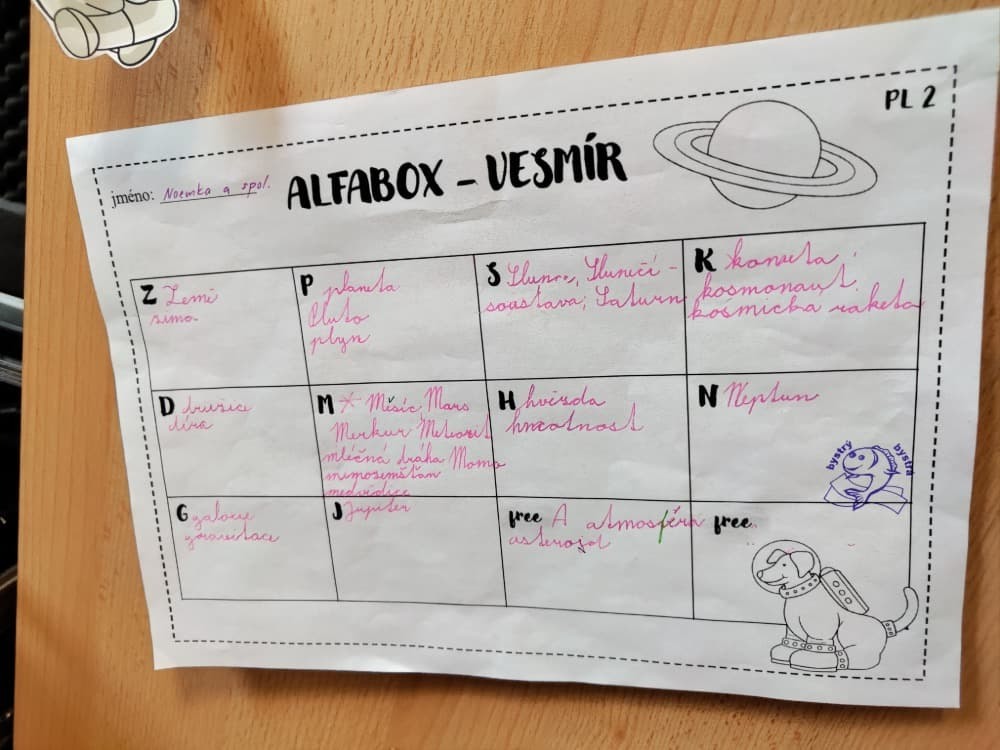 PL 2
jméno: Noemka a spol.
ALFABOX – VESMÍR
Z Země
zima
P planeta
Pluto
plyn
S Slunce, Slunečí -
soustava, Saturn
K kometa,
kosmonaut,
kosmická raketa
D družice
díra
M Měsíc, Mars
Merkur Meteorit
mléčná dráha Momo
mimozemšťan
medvědice
H hvězda
hmotnost
N Neptun
bystrý bystrá
G galaxie
gravitace
J Jupiter
free A atmosféra
asterojd
free